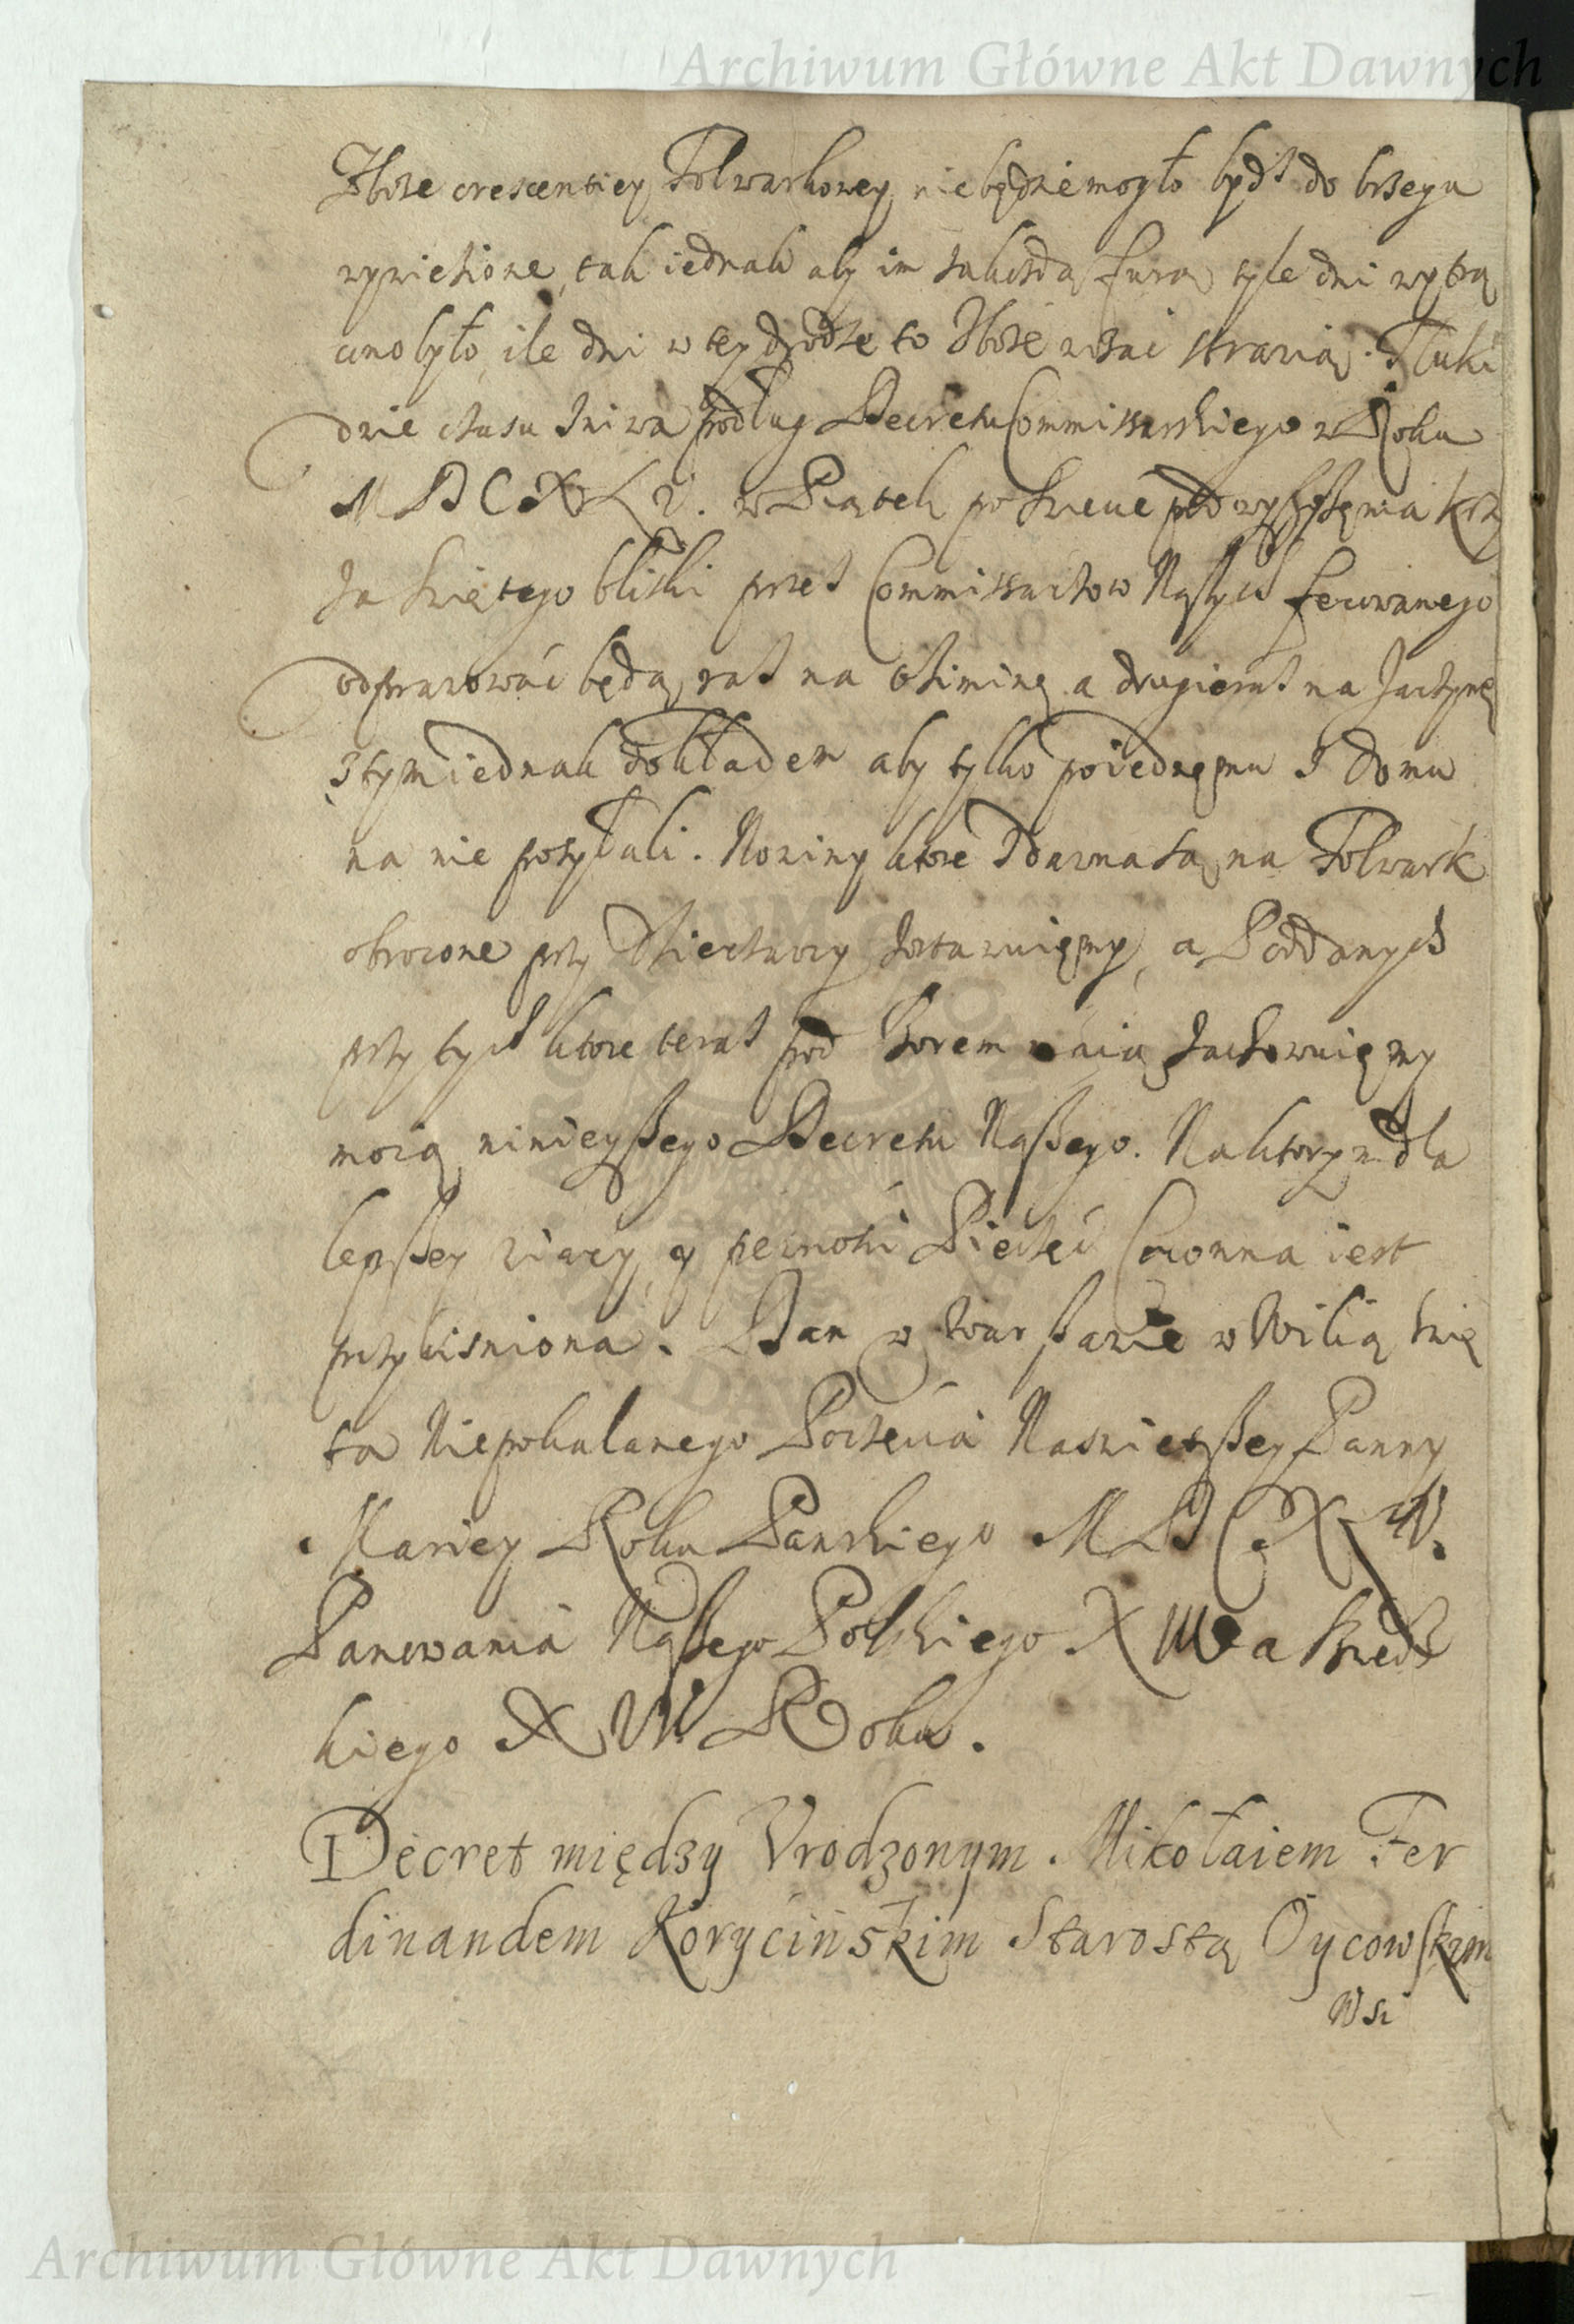 Archiwum Główne Akt Dawnych
Zboże crescentiey Folwarkowey, niebędziemogło bydź do brzegu
wywieźione, tak iednak aby im zakożdą furą tyle dni wytrą
cono było, ile dni w tey drodze to Zboże wożąc strawią. Tłuki
dwie czasu żniwa podług Decretu Commissarskiego w Roku
MDCXLV. w Piątek po Święcie podwyższęnia Krzy
ża Świętego bliski przez Commissarzow Naszych ferowanego
odprawować będą, raz na Oźiminę a drugi raz na Jarzynę
z tym iednak dokładem aby tylko poiednęmu z domu
na nie posyłali. Nowiny ktore zdawna są na Folwark
obrocone przy Dzierżawcy zostawuięmy, a Poddanych
przy tych ktore teraz pod borem maią zachowuięmy
mocą ninieyszego Decretu Naszego. Naktorym dla
lepszey wiary, y pewności Pieczęć Coronna iest
przyćiśniona. Dan w Warszawie w Wilią Świę
ta Niepokalanego Poczęcia Naświętszey Panny
Mariey Roku Pańskiego MDCXLV.
Panowania Naszego Polskiego XIII a Szwedz
kiego XIV. Roku.
Decret między Vrodzonym Mikołaiem Fer
dinandem Koryciński̇m Starostą Oycowskim
Wsi
Archiwum Główne Akt Dawnych